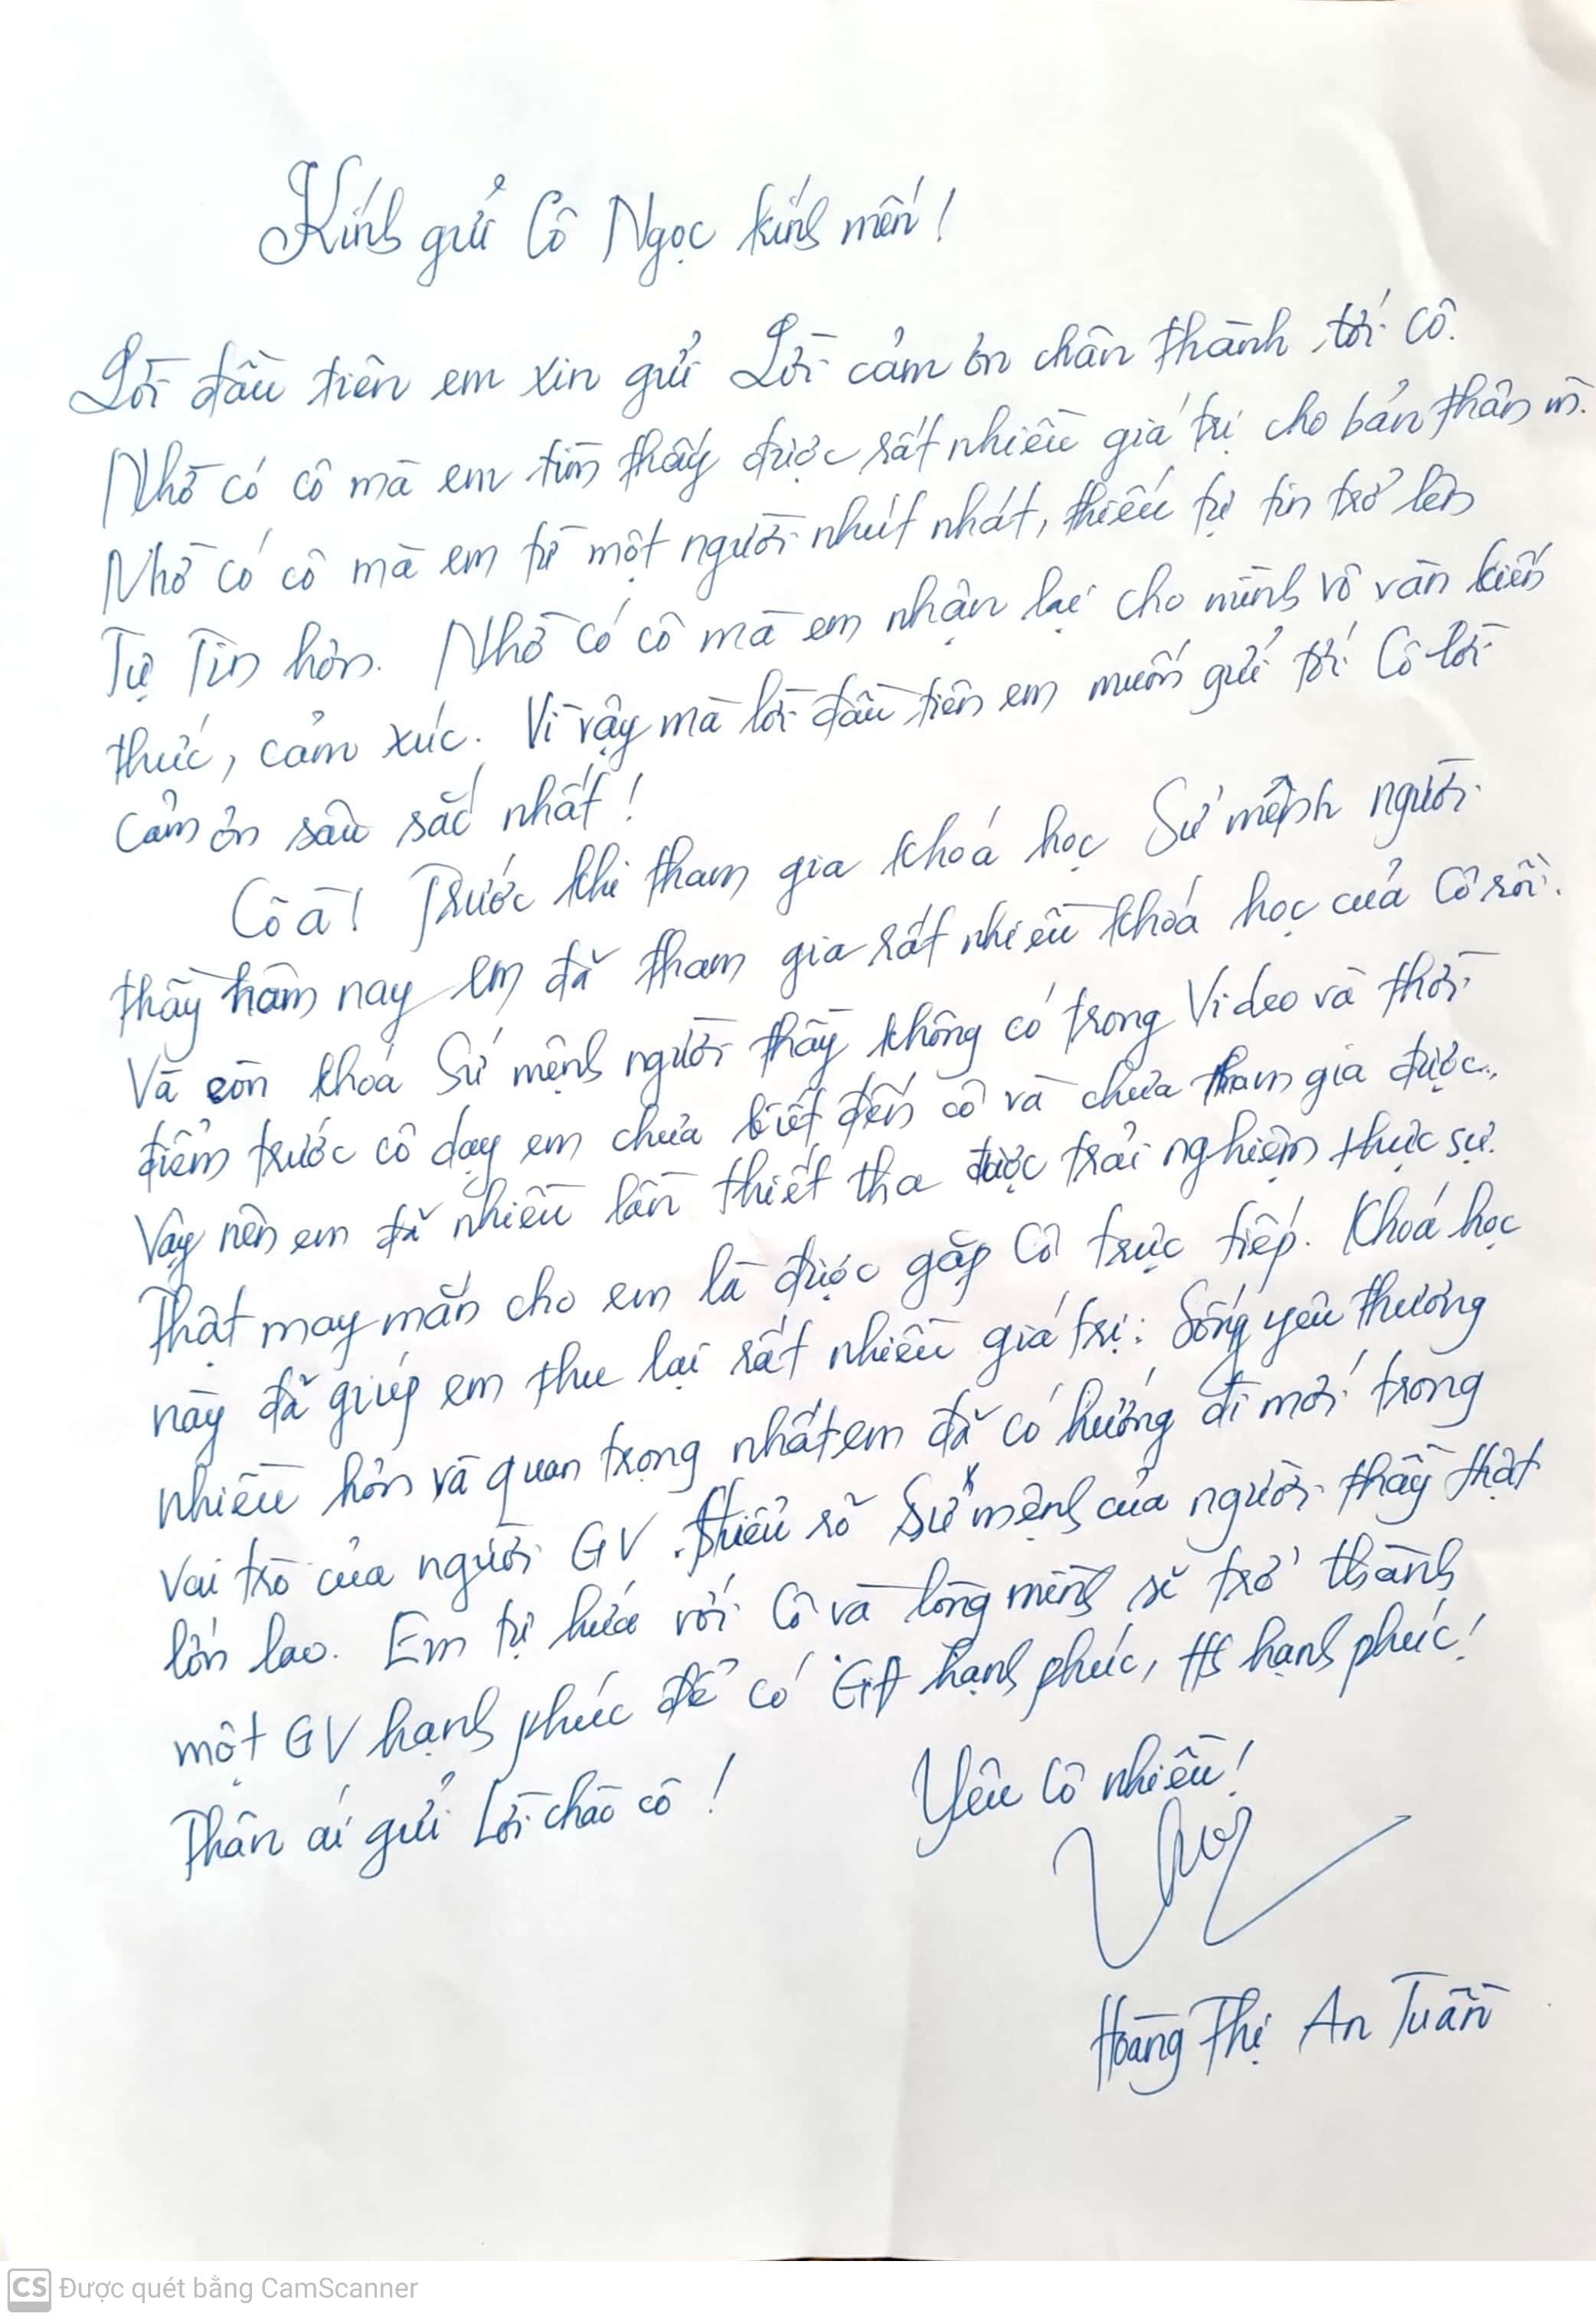 Kính gửi Cô Ngọc kính mến!
Lời đầu tiên em xin gửi Lời cảm ơn chân thành tới cô.
Nhờ có cô mà em tìm thấy được rất nhiều giá trị cho bản thân m.
Nhờ có cô mà em từ một người nhút nhát, thiếu tự tin trở lên
Tự Tin hơn. Nhờ có cô mà em nhận lại cho mình vô vàn kiến
thức, cảm xúc. Vì vậy mà lời đầu tiên em muốn gửi tới Cô lời
cảm ơn sâu sắc nhất!
Cô à! Trước khi tham gia khoá học Sứ mệnh người
thầy hôm nay em đã tham gia rất nhiều khoá học của Cô rồi.
Và còn khoá Sứ mệnh người thầy không có trong Video và thời
điểm trước cô dạy em chưa biết đến cô và chưa tham gia được.
Vậy nên em đã nhiều lần thiết tha được trải nghiệm thực sự.
Thật may mắn cho em là được gặp Cô trực tiếp. Khoá học
này đã giúp em thu lại rất nhiều giá trị: Sống yêu thương
nhiều hơn và quan trọng nhất em đã có hướng đi mới trong
vai trò của người GV. Hiểu rõ Sứ mệnh của người thầy thật
lớn lao. Em tự hứa với Cô và lòng mình sẽ trở thành
một GV hạnh phúc để có GĐ hạnh phúc, HS hạnh phúc!
Thân ái gửi Lời chào cô!
Yêu Cô nhiều!
Hoàng Thị An Tuần
CS Được quét bằng CamScanner